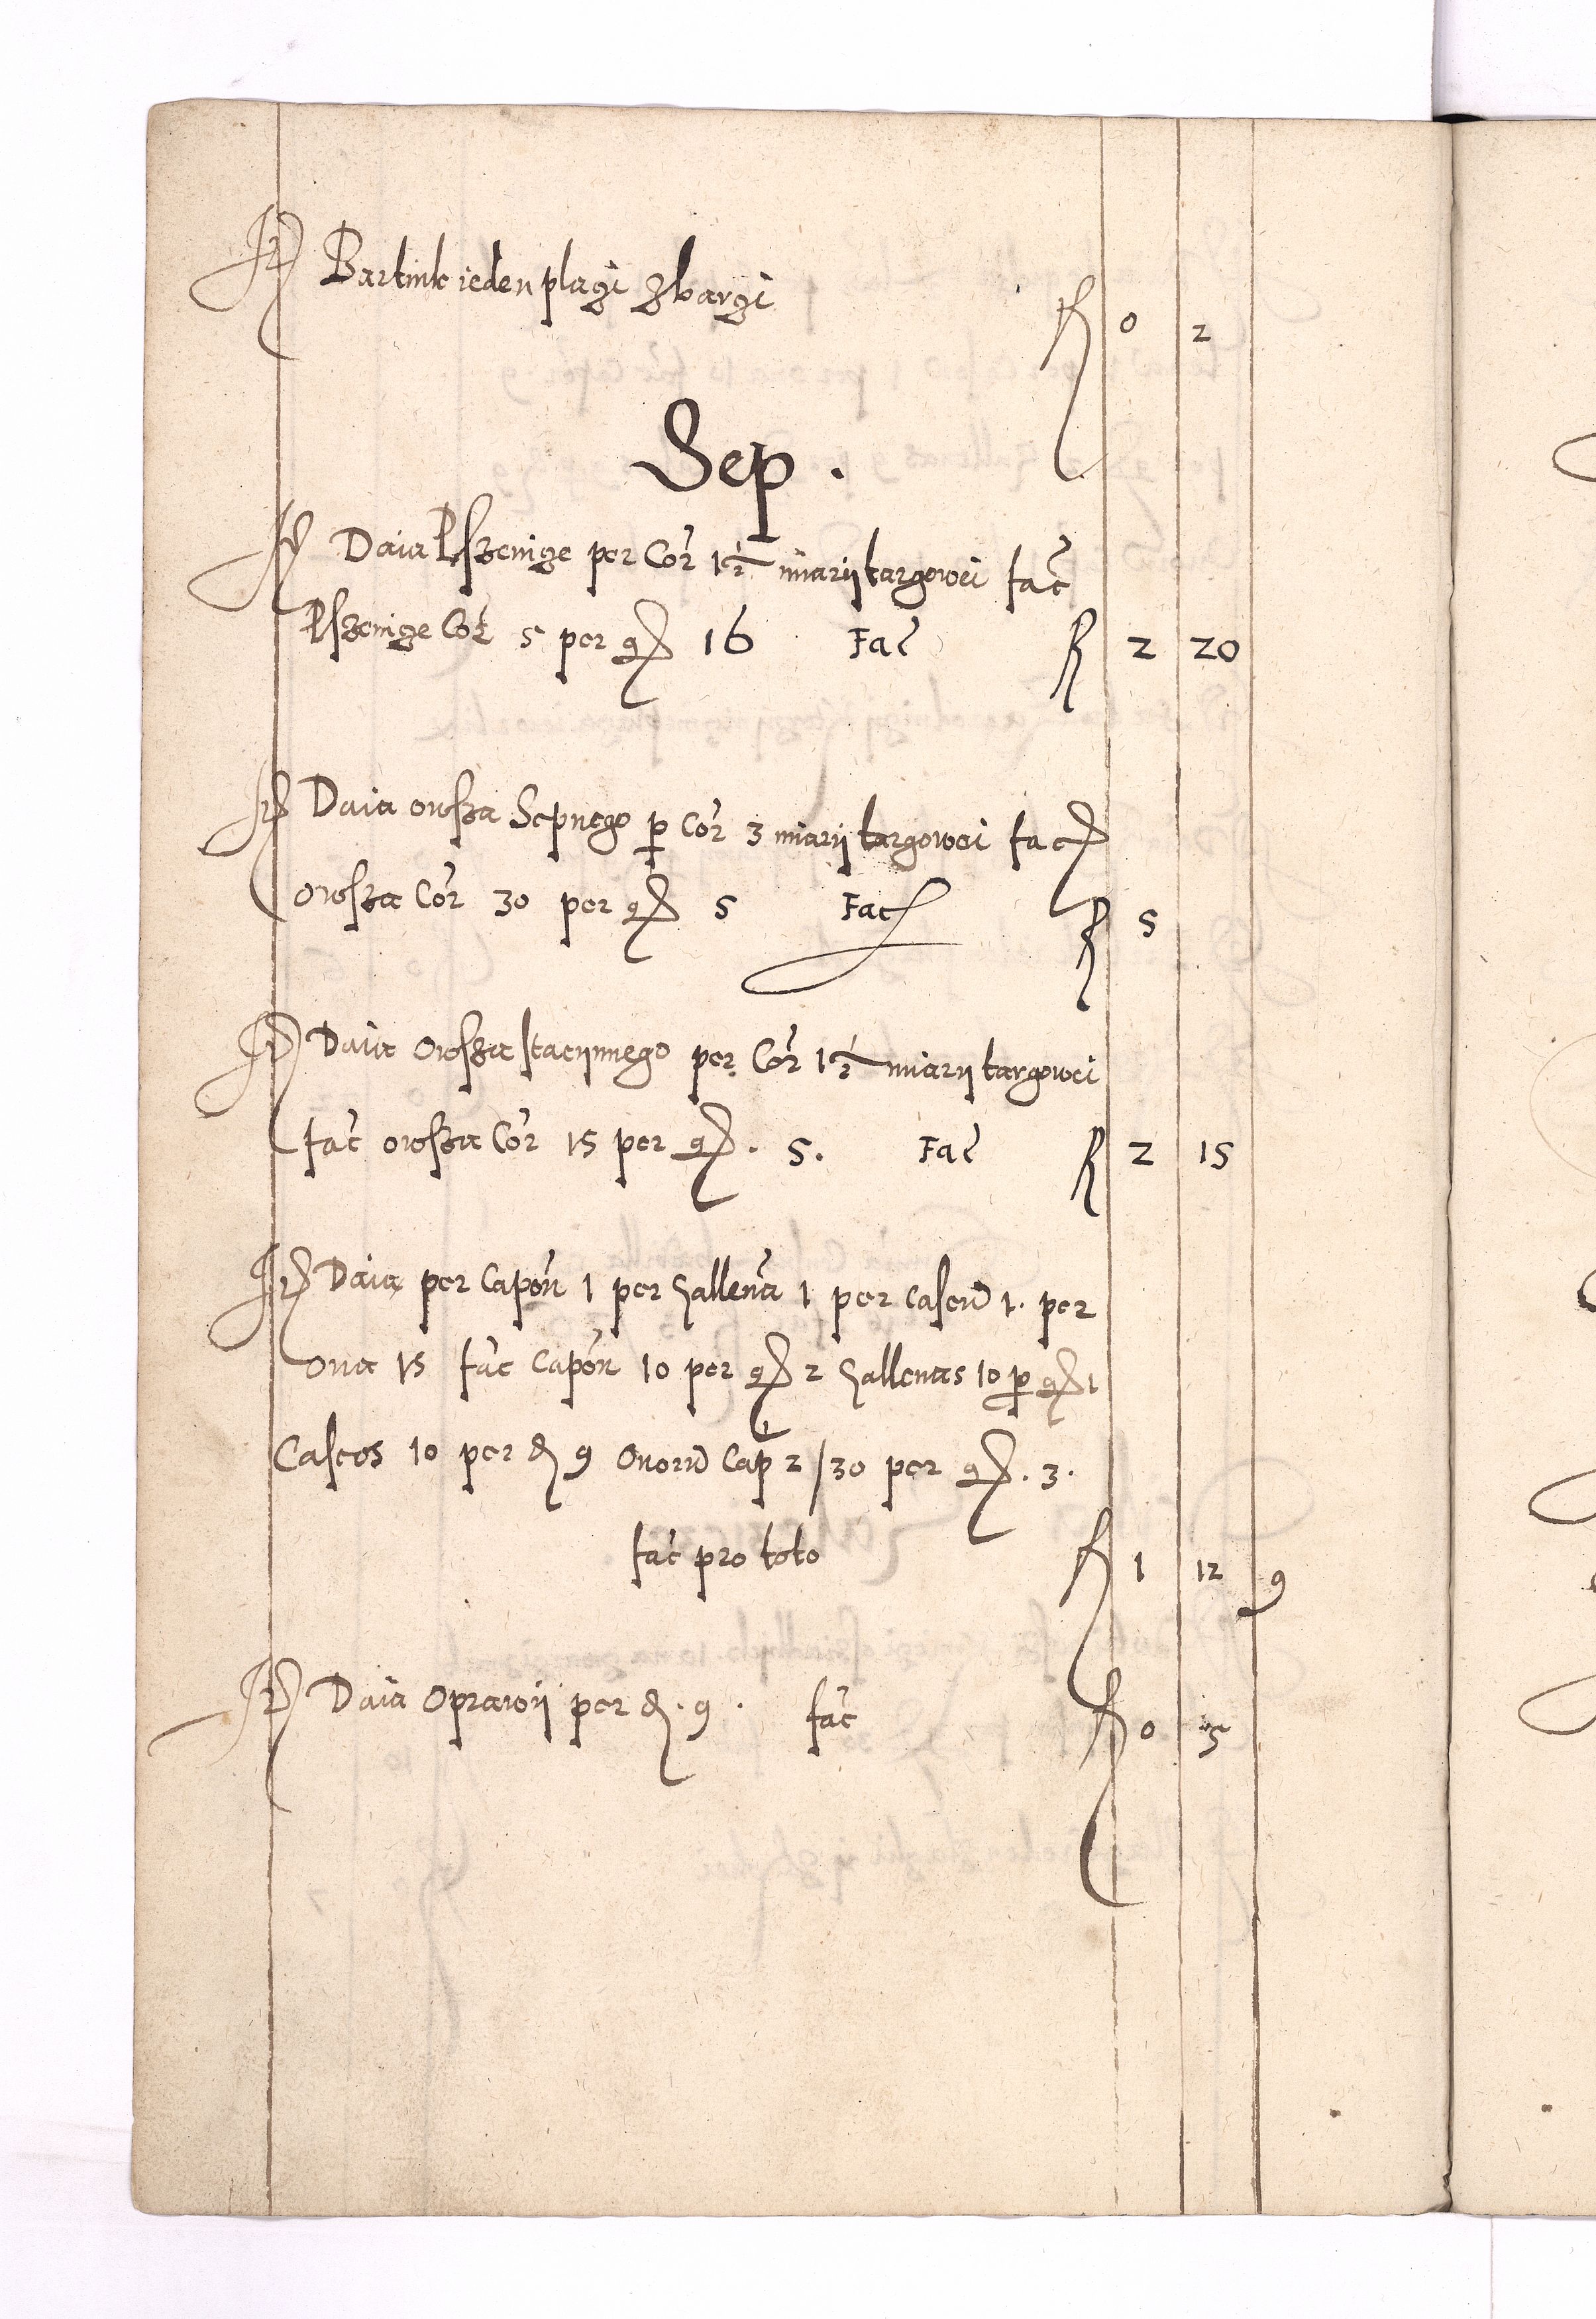 It Bartnik ieden placzi zbarczi f 0 2
Sep .
It Daia Pszenicze per Cor 1½ miary targowei fac
Pszenicze Cor 5 per gr 16 Fac f 2 20
It Daia owsza Sepnego p Cor 3 miary targowei fac
owsza Cor 30 per gr 5 Fac f 5
It Daia Owsza stacyinego per Cor 1½ miary targowei
fac owsza Cor 15 per gr . 5 . Fac f 2 15
It Daia per Capon 1 per gallena 1 per Caseu 1 . per
oua 15 fac Capon 10 per gr 2 gallenas 10 p gr 1
Caseos 10 per d 9 Ouoru Cap 2/30 per gr . 3 .
fac pro toto f 1 12 9
It Daia Oprawy per d . 9 . fac f 0 5